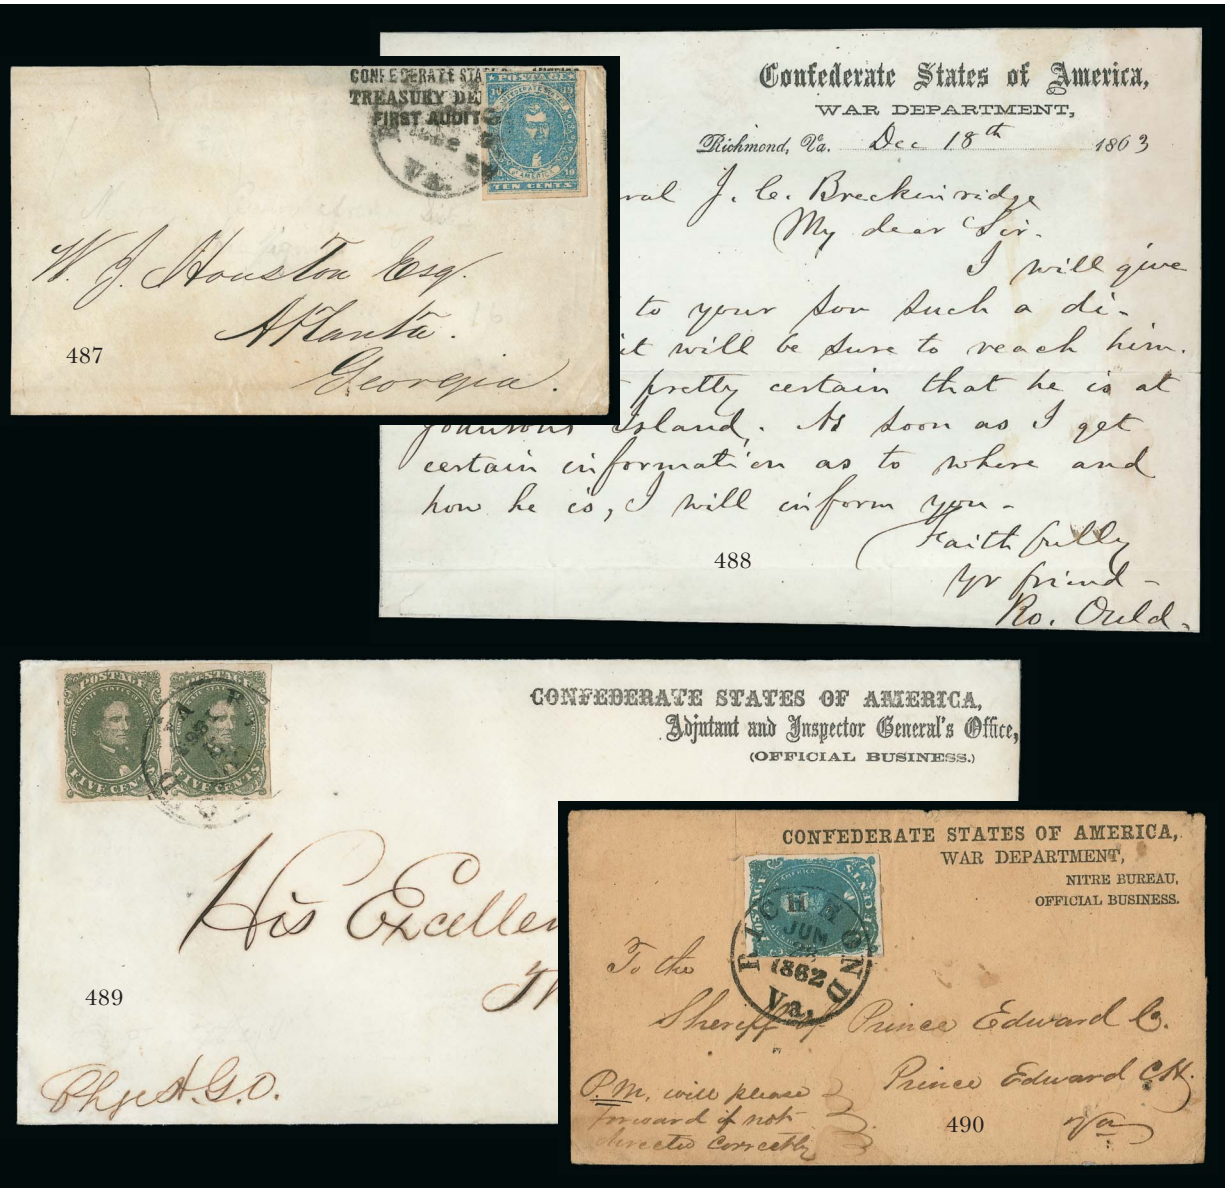 CONFEDERATE STA
TREASURY DE
FIRST AUDITO
Va.
POSTAGE
TEN CENTS
W. J. Houston Esq.
Atlanta.
Georgia.
487
Confederate States of America,
WAR DEPARTMENT,
Richmond, Va. Dec 18th 1863
ral J. C. Breckinridge
My dear Sir.
I will give
to your son such a di-
it will be sure to reach him.
pretty certain that he is at
Johnsons Island. As soon as I get
certain information as to where and
how he is, I will inform you.
Faithfully
Yr friend
Ro. Ould.
488
POSTAGE POSTAGE
FIVE CENTS FIVE CENTS
CONFEDERATE STATES OF AMERICA,
Adjutant and Inspector General's Office,
(OFFICIAL BUSINESS.)
His Excellen
489
Chge A.G.O.
CONFEDERATE STATES OF AMERICA,
WAR DEPARTMENT,
NITRE BUREAU,
OFFICIAL BUSINESS.
POSTAGE
RICHMOND
JUN
1862
Va.
To the
Sheriff of Prince Edward Co.
Prince Edward C.H.
Va
P.M. will please
forward if not
directed correctly
490